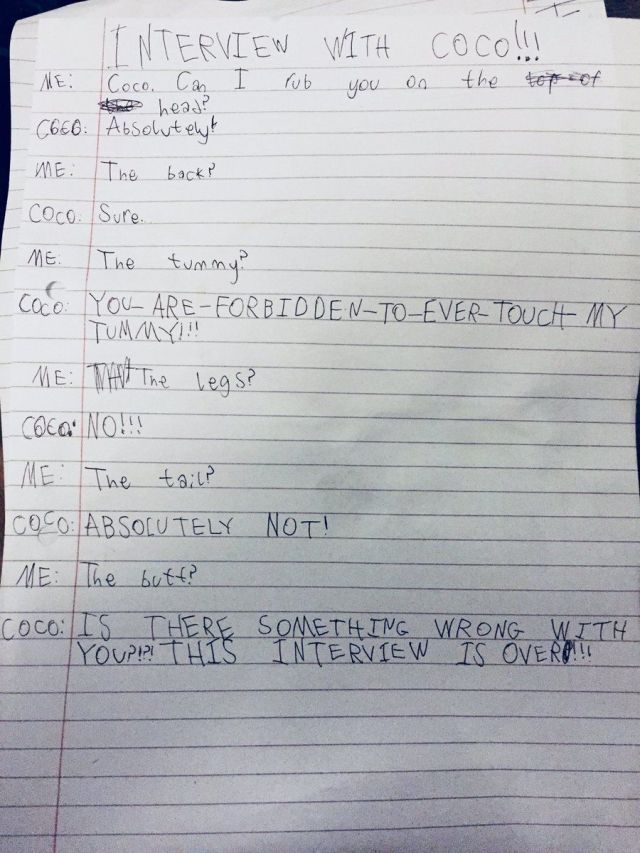 INTERVIEW WITH COCO!!!
ME: Coco. Can I rub you on the top of
the head?
COCO: Absolutely!
ME: The back?
COCO: Sure.
ME: The tummy?
COCO: YOU-ARE-FORBIDDEN-TO-EVER-TOUCH-MY
TUMMY!!!
ME: The legs?
COCO: NO!!!
ME: The tail?
COCO: ABSOLUTELY NOT!
ME: The butt?
COCO: IS THERE SOMETHING WRONG WITH
YOU?!?! THIS INTERVIEW IS OVER!!!